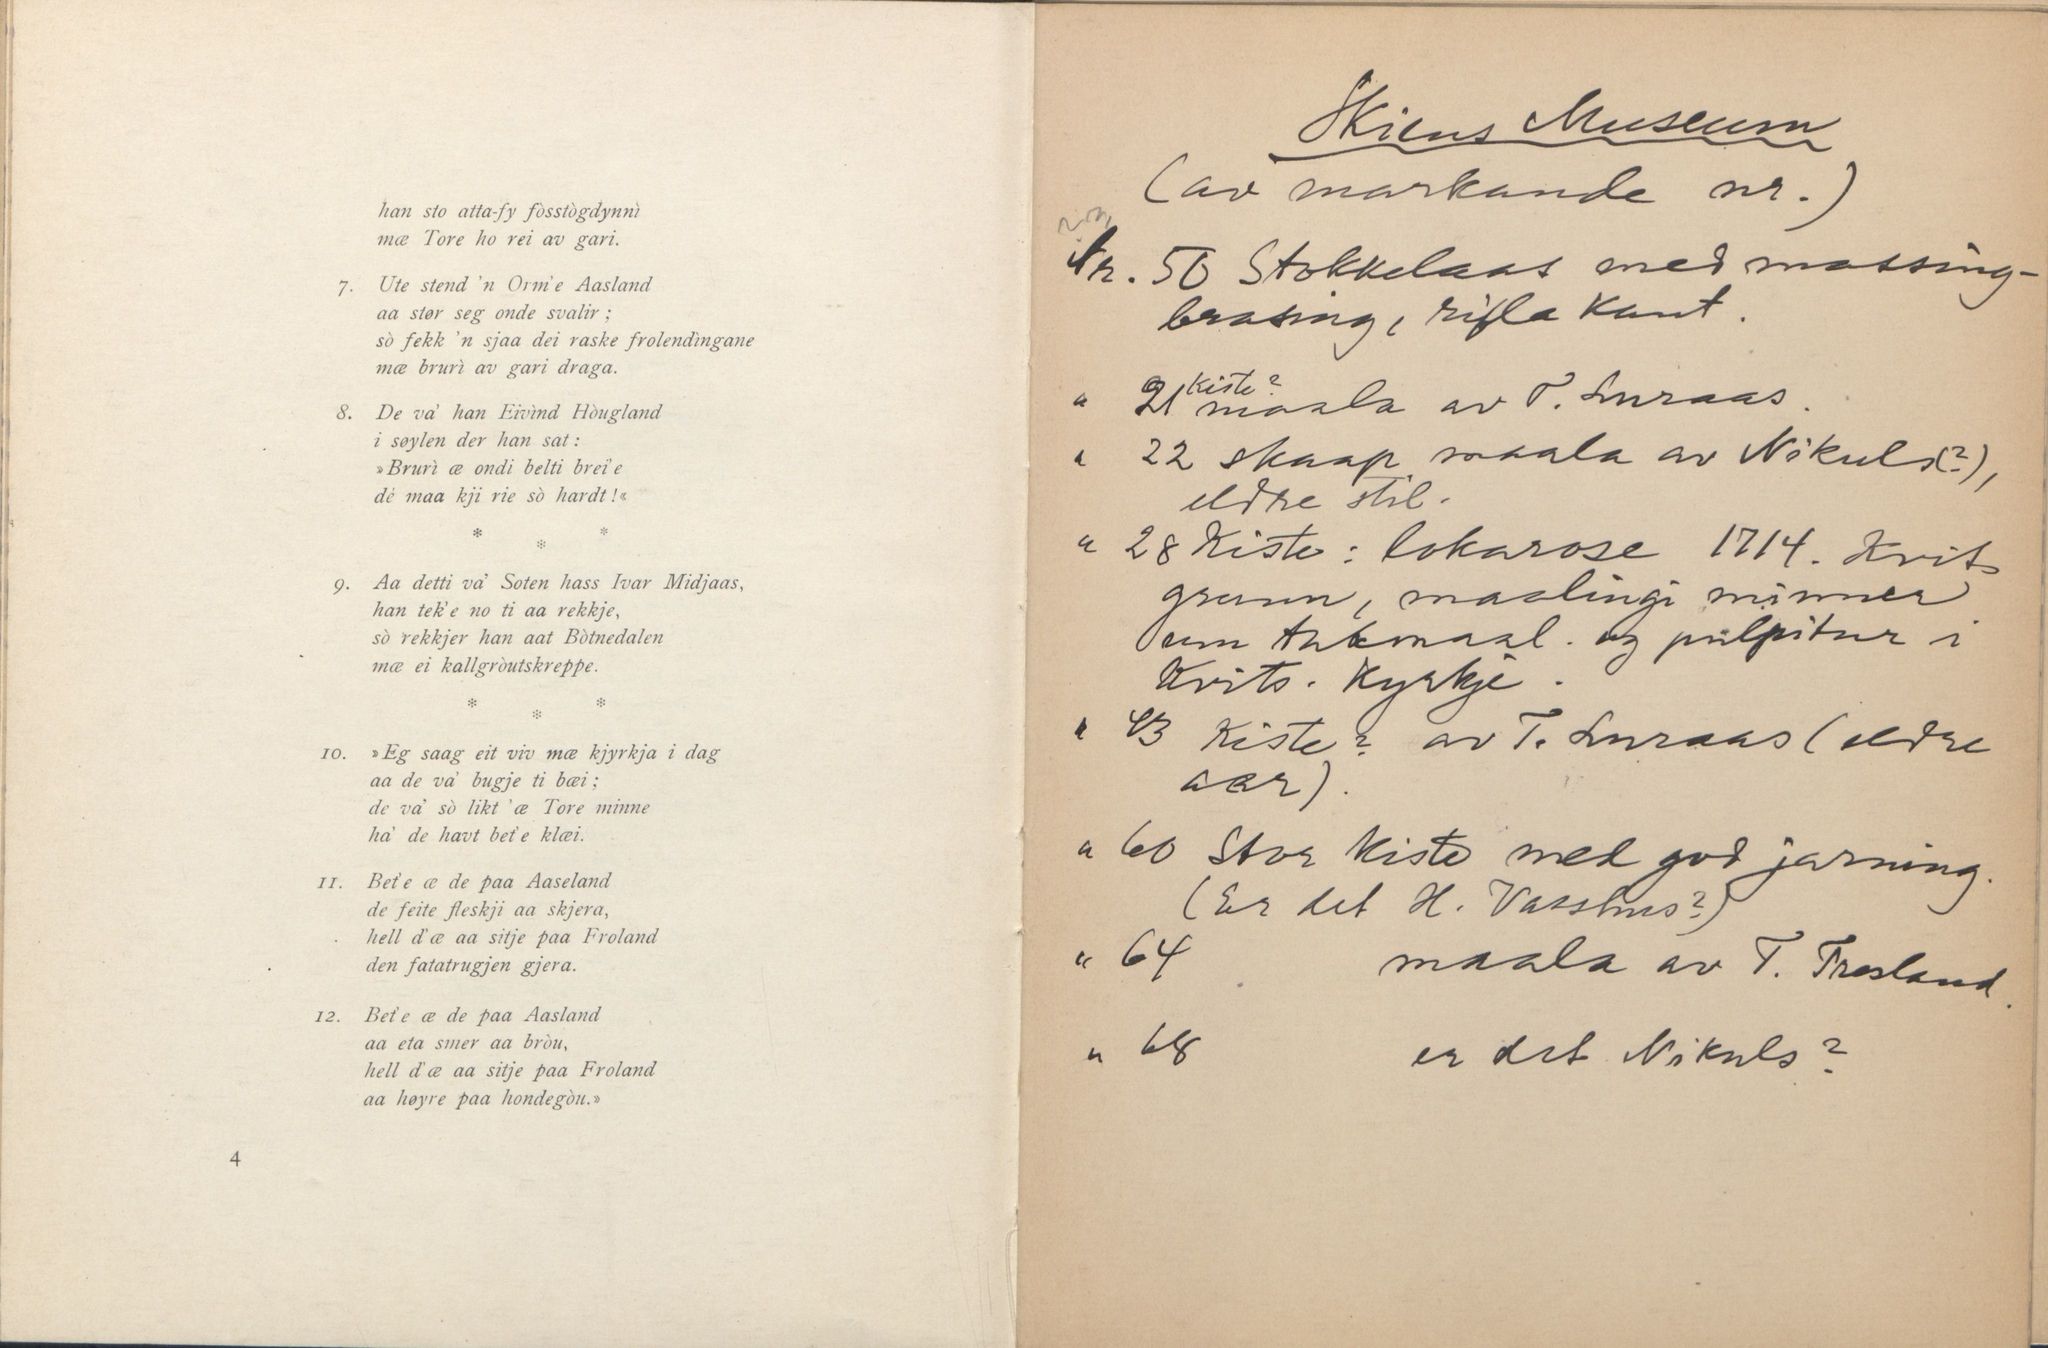 han sto atta-fy fòsstògdynnì
mæ Tore ho rei av gari.
7. Ute stend 'n Orm'e Aasland
aa stør seg onde svalir ;
sò fekk 'n sjaa dei raske frolendìngane
mæ brurì av gari draga.
8. De va' han Eivìnd Hòugland
i søylen der han sat :
»Brurì æ ondi belti brei'e
dé maa kji rie sò hardt !«
* * *
9. Aa detti va' Soten hass Ivar Midjaas,
han tek'e no ti aa rekkje,
sò rekkjer han aat Bòtnedalen
mæ ei kallgròutskreppe.
* * *
10. »Eg saag eit viv mæ kjyrkja i dag
aa de va' bugje ti bæi ;
de va' sò likt 'æ Tore minne
ha' de havt bet'e klæi.
11. Bet'e æ de paa Aaseland
de feite fleskji aa skjera,
hell d'æ aa sitje paa Froland
den fatatrugjen gjera.
12. Bet'e æ de paa Aasland
aa eta smer aa bròu,
hell d'æ aa sitje paa Froland
aa høyre paa hondegòu.»
4
Skiens Museum
(av markande nr.)
Nr. 50 Stokkelaas med massing-
brasing, rifla kant.
" 21 Kiste? maala av T. Luraas.
" 22 skaap maala av Nikuls(?),
eldre stil.
" 28 Kiste : lokarose 1714. Kvits
grunn, maalingi minner
um takmaal. og pulpitur i
Kvits. Kyrkje.
" 43 Kiste? av T. Luraas (eldre
aar).
" 60 Stor kiste med god jarning.
(Er det H. Vasshus?)
" 64 maala av T. Tresland.
" 68 er det Nikuls?